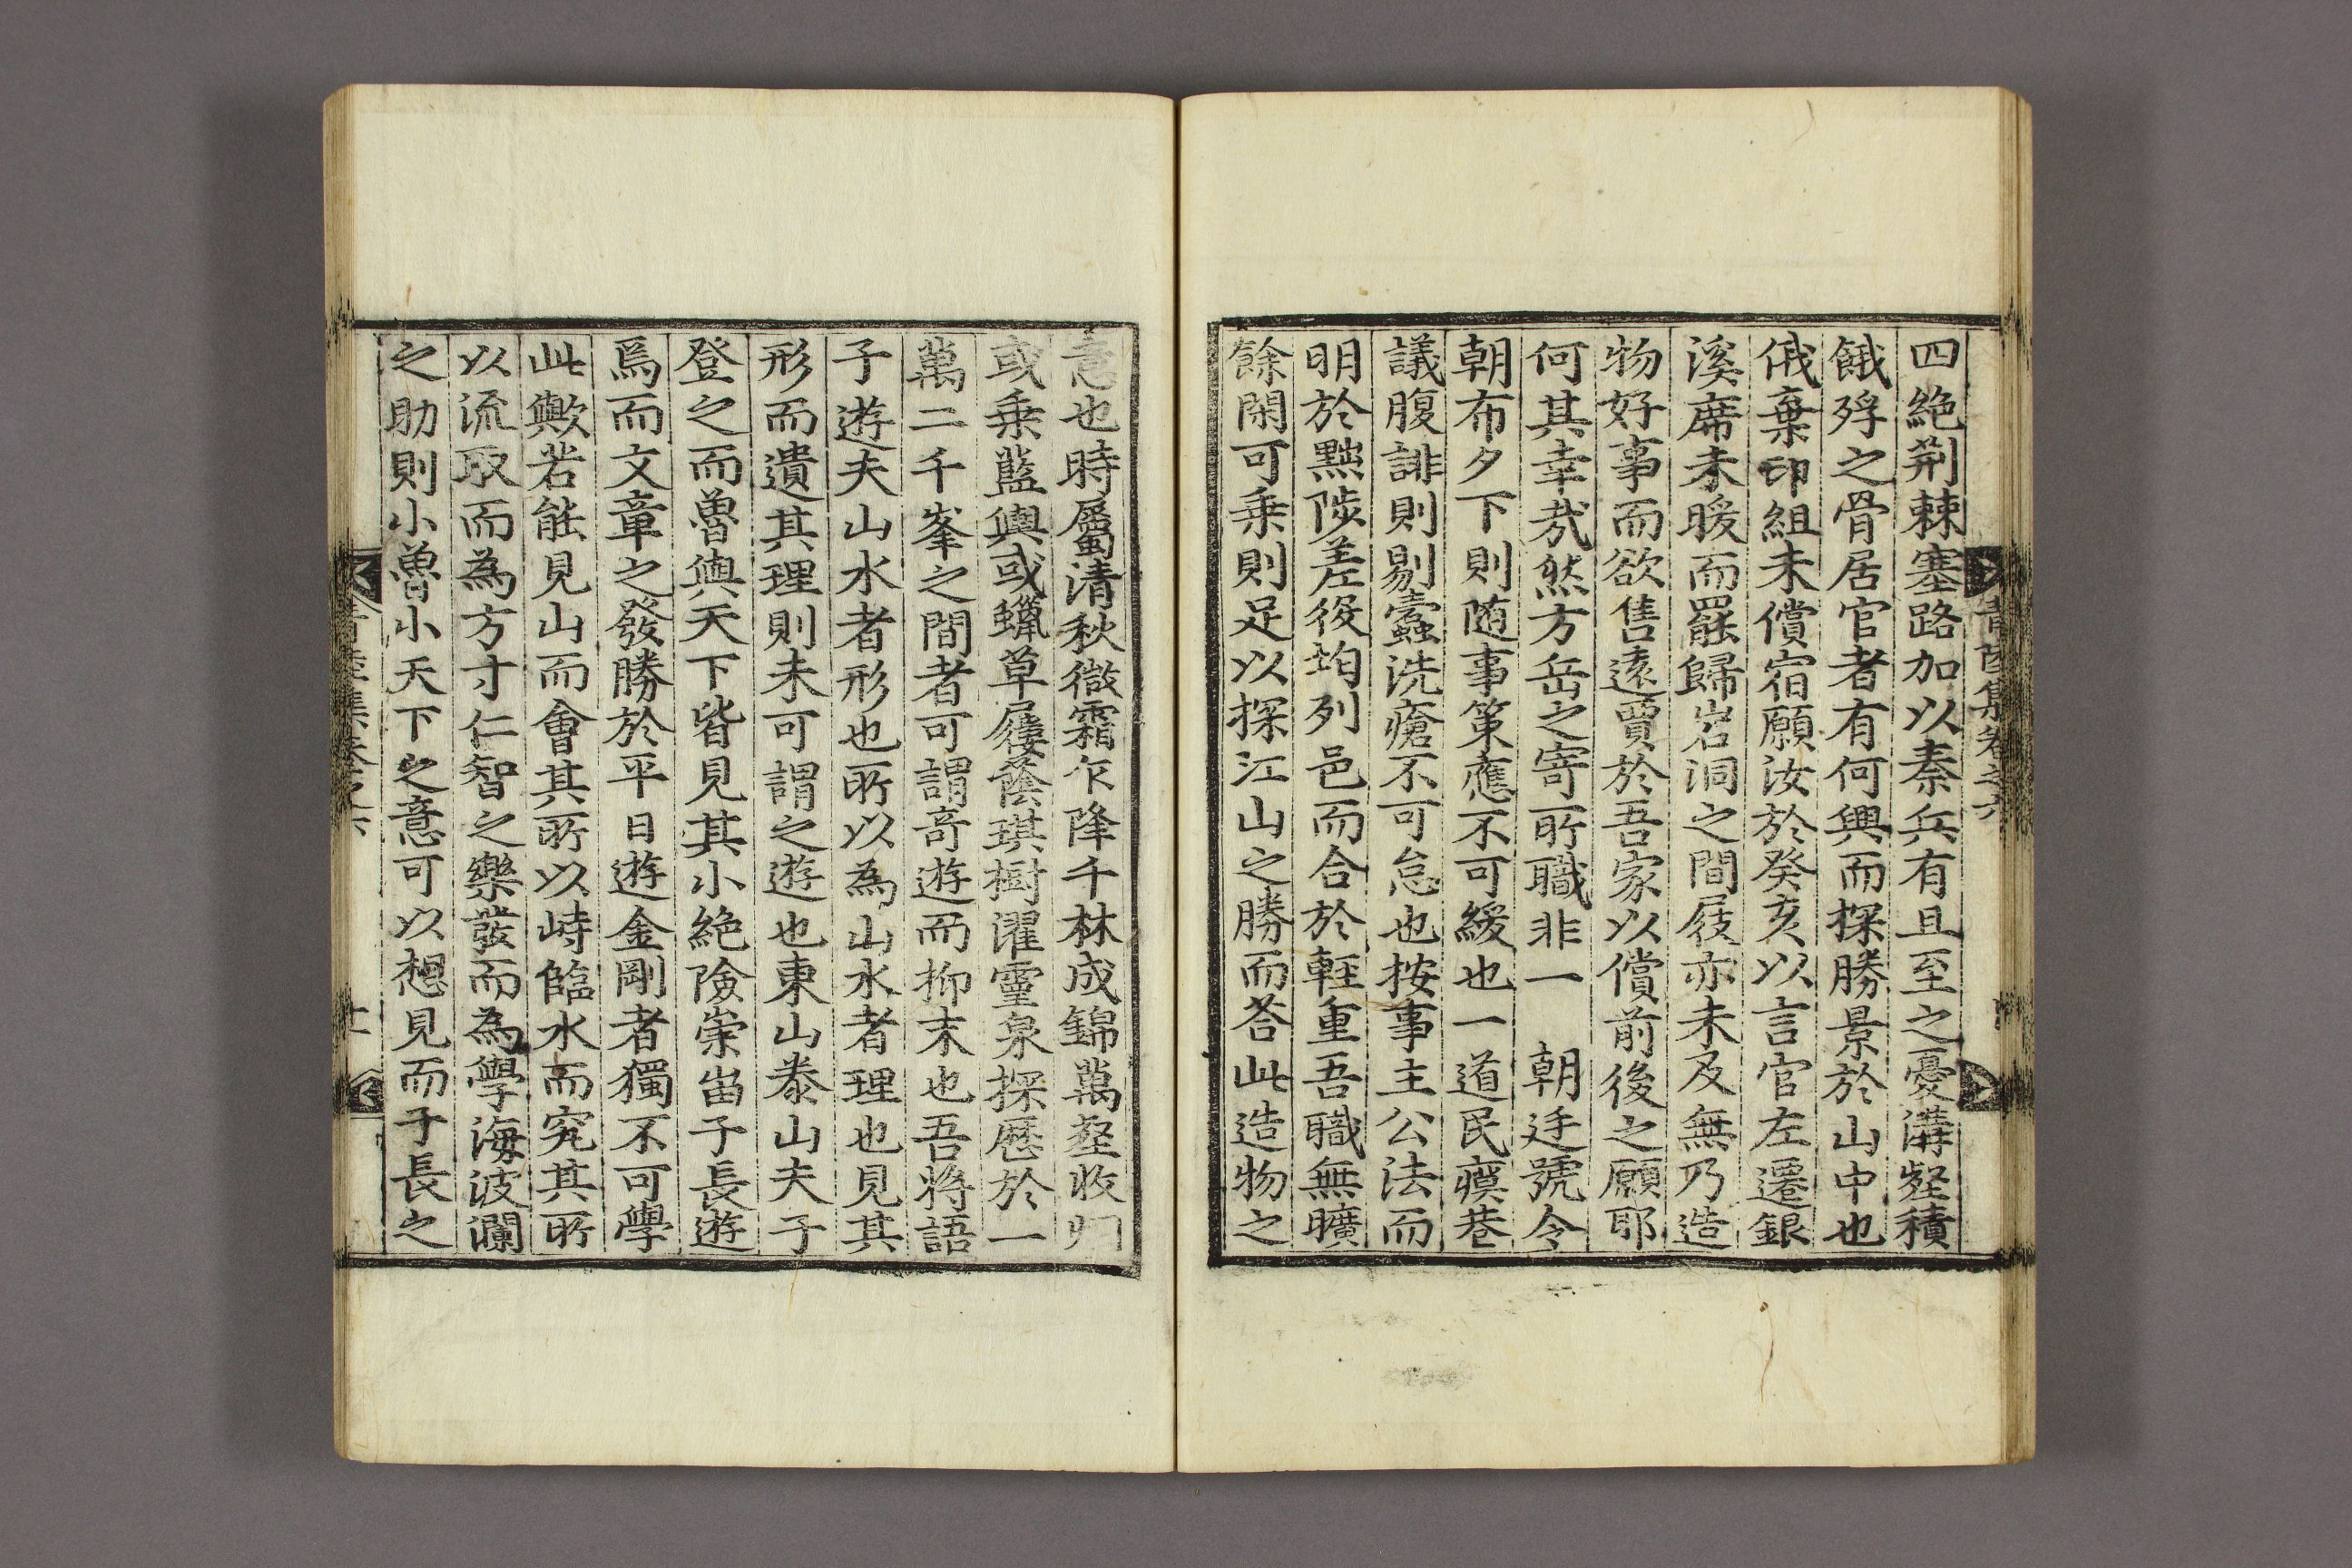 四絶荆棘塞路加以秦兵有且至之憂溝壑積
餓殍之骨居官者有何興而探勝景於山中也
俄棄印組未償宿願汝於癸亥以言官左遷銀
溪席未暖而罷歸岩洞之間屐亦未及無乃造
物好事而欲售遠賈於吾家以償前後之願耶
何其幸㦲然方岳之寄所職非一　朝廷號令
朝布夕下則随事策應不可緩也一道民瘼巷
議腹誹則剔蠧洗瘡不可怠也按事主公法而
明於黜陟差役均列邑而合於輕重吾職無曠
餘閑可乗則足以探江山之勝而荅此造物之
意也時屬清秋微霜乍降千林成錦萬壑收
或乗藍輿或蠟草屨蔭琪樹濯靈泉探歷於一
萬二千峯之間者可謂竒遊而抑末也吾將語
子遊夫山水者形也所以為山水者理也見其
形而遺其理則未可謂之遊也東山泰山夫子
登之而魯與天下皆見其小絶險崇峀子長遊
焉而文章之發勝於平日遊金剛者獨不可學
此歟若能見山而會其所以峙臨水而究其所
以流取而為方寸仁智之樂發而為學海波瀾
之助則小魯小天下之意可以想見而子長之